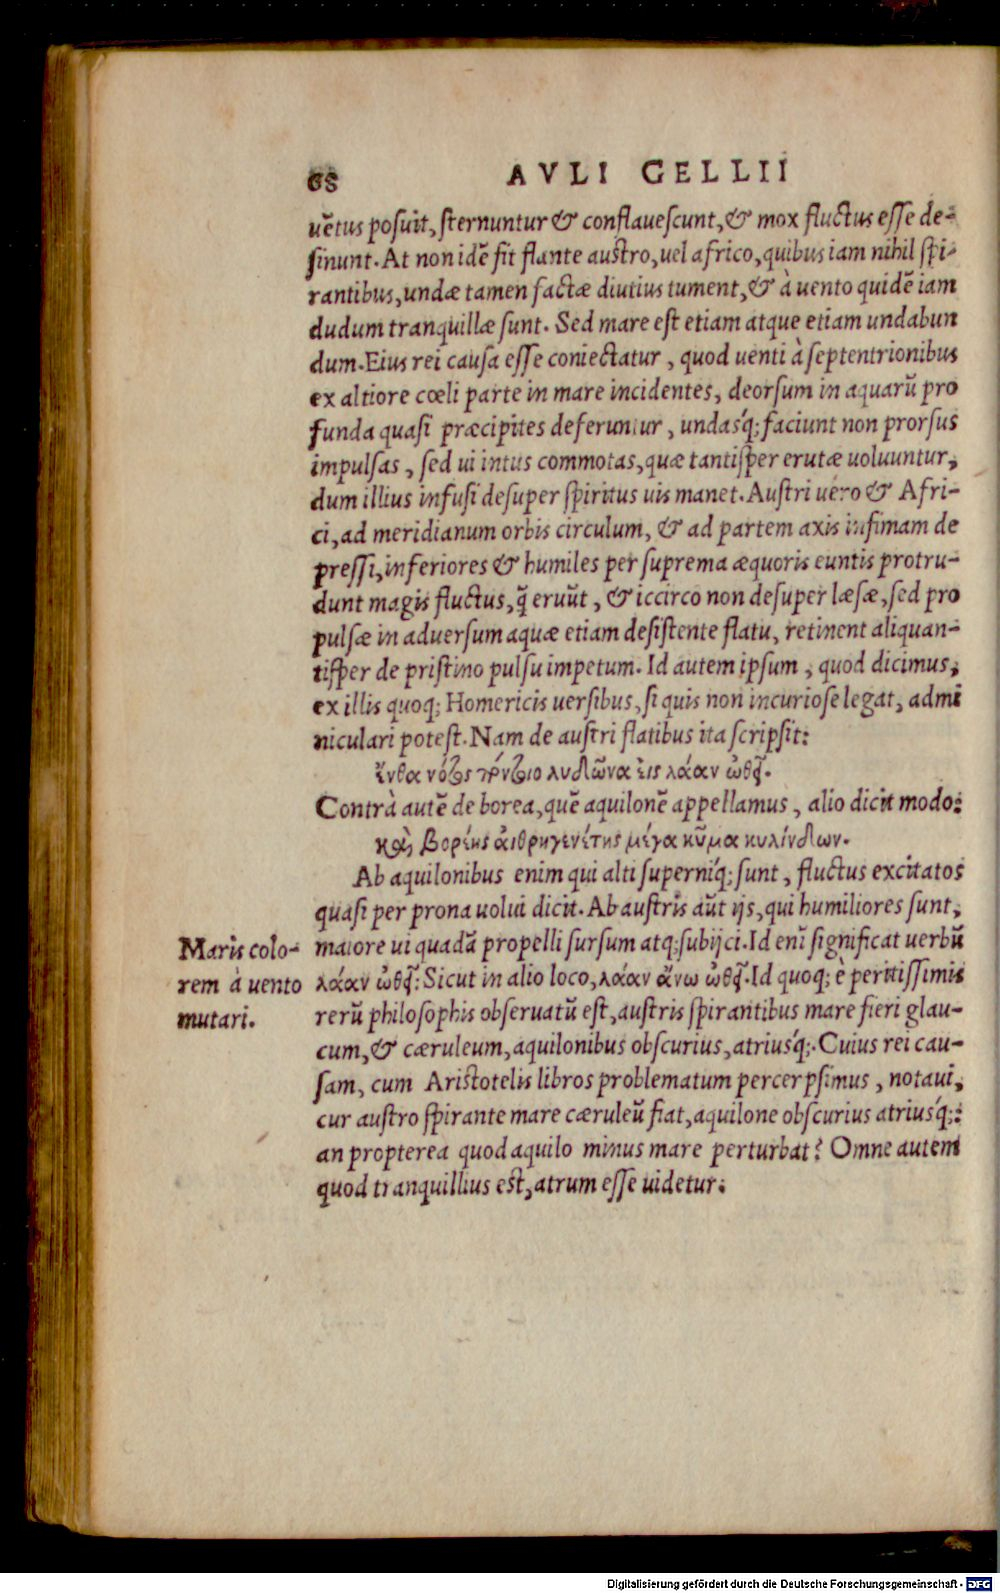 68 AVLI GELLII
uẽtus posuit, sternuntur & conflauescunt, & mox fluctus esse de-
sinunt. At non idẽ fit flante austro, uel africo, quibus iam nihil spi-
rantibus, undæ tamen factæ diutius tument, & à uento quidẽ iam
dudum tranquillæ sunt. Sed mare est etiam atque etiam undabun
dum. Eius rei causa esse coniectatur, quod uenti à septentrionibus
ex altiore cœli parte in mare incidentes, deorsum in aquarũ pro
funda quasi præcipites deferuntur, undasq́; faciunt non prorsus
impulsas, sed ui intus commotas, quæ tantisper erutæ uoluuntur,
dum illius infusi desuper spiritus uis manet. Austri uero & Afri-
ci, ad meridianum orbis circulum, & ad partem axis infimam de
pressi, inferiores & humiles per suprema æquoris euntis protru-
dunt magis fluctus, q̃ eruũt, & iccirco non desuper læsæ, sed pro
pulsæ in aduersum aquæ etiam desistente flatu, retinent aliquan-
tisper de pristino pulsu impetum. Id autem ipsum, quod dicimus,
ex illis quoq; Homericis uersibus, si quis non incuriose legat, admi
niculari potest. Nam de austri flatibus ita scripsit:
ἔνθα νότος
Contrà autẽ de borea, quẽ aquilonẽ appellamus, alio dicit modo:
καὶ βορέης αἰθρηγενέτης μέγα κῦμα κυλίνδων.
Ab aquilonibus enim qui alti superniq́; sunt, fluctus excitatos
quasi per prona uolui dicit. Ab austris aũt ijs, qui humiliores sunt,
maiore ui quadã propelli sursum atq; subijci. Id enĩ significat uerbũ
λάαν ὦθει: Sicut in alio loco, λάαν ἄνω ὦθει. Id quoq; è peritissimis
rerũ philosophis obseruatũ est, austris spirantibus mare fieri glau-
cum, & cæruleum, aquilonibus obscurius, atriusq́;. Cuius rei cau-
sam, cum Aristotelis libros problematum percerpsimus, notaui,
cur austro spirante mare cæruleũ fiat, aquilone obscurius atriusq́;:
an propterea quod aquilo minus mare perturbat? Omne autem
quod tranquillius est, atrum esse uidetur.
Maris colo-
rem à uento
mutari.
Digitalisierung gefördert durch die Deutsche Forschungsgemeinschaft - DFG